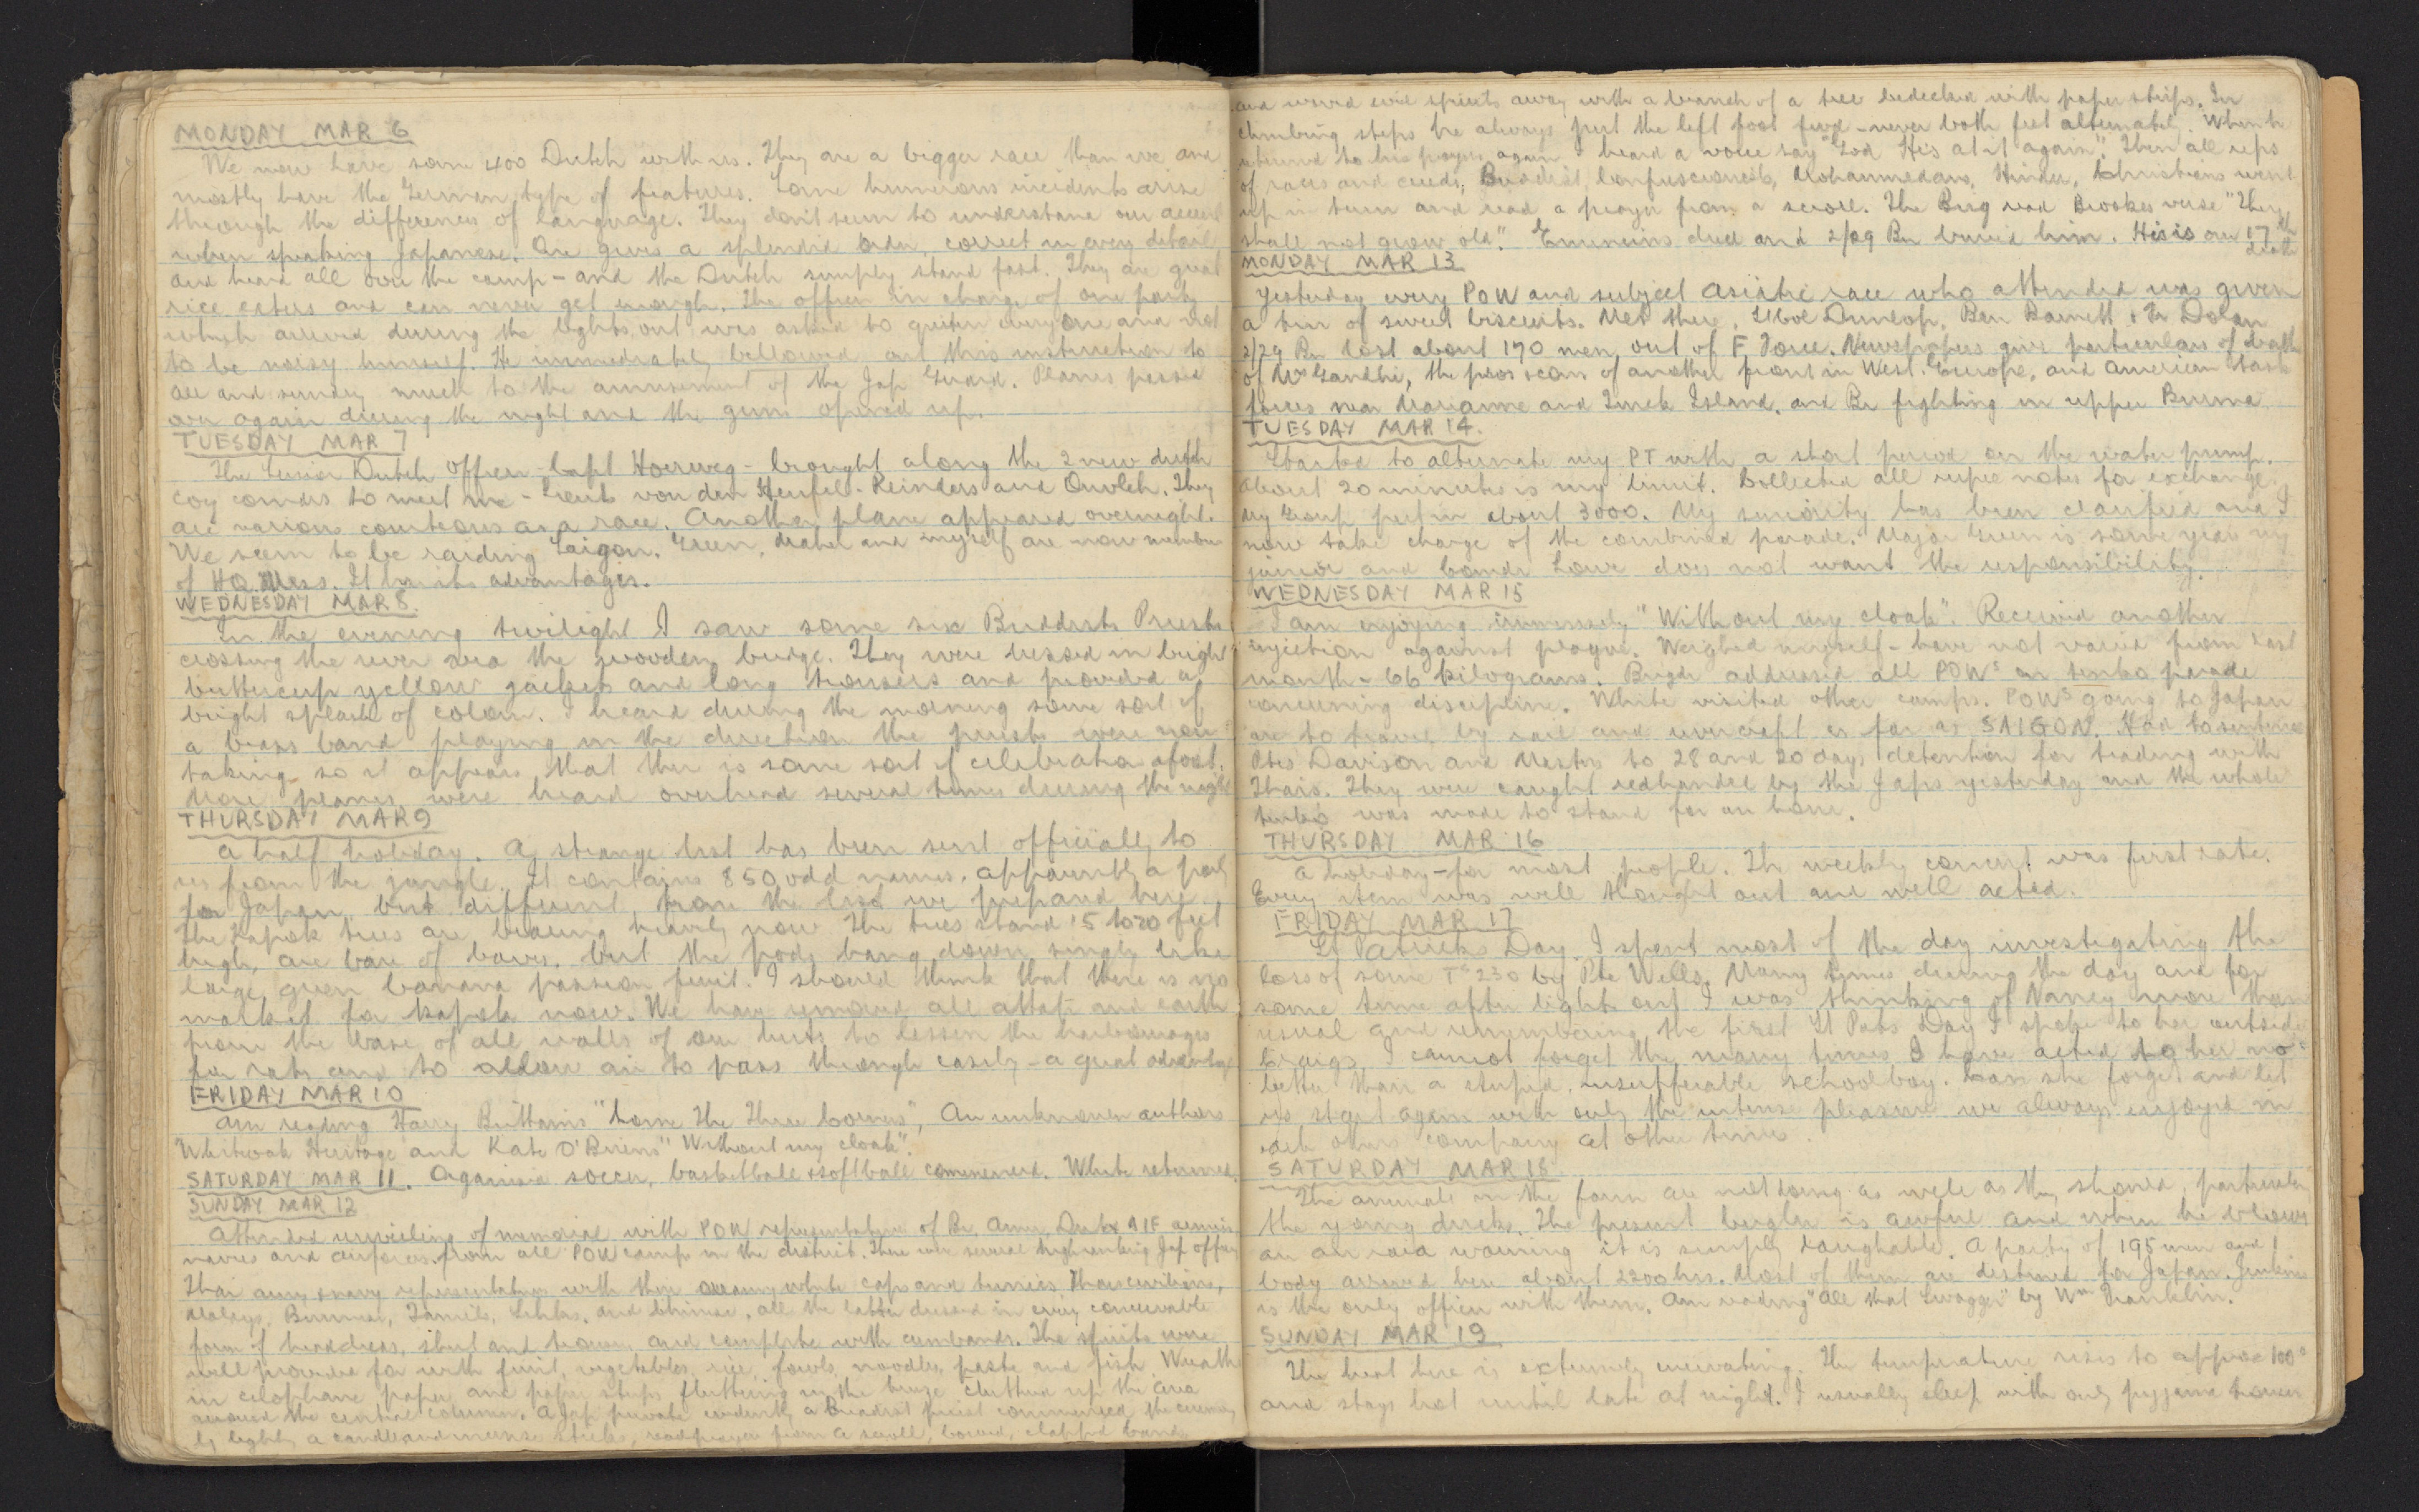 MONDAY MAR 6
We now have some 400 Dutch with us. They are a bigger race than we and
mostly have the German type of features. Some humerous incidents arise
through the differences of language. They don't seem to understand our accent
when speaking Japanese. One gives a splendid order, correct in every detail
and heard all over the camp - and the Dutch simply stand fast. They are great
rice eaters and can never get enough. The officer in charge of one party
which arrived during the lights out was asked to quieten everyone and not
to be noisy himself. He immediately bellowed out this instruction to
all and sundry much to the amusement of the Jap Guard. Planes passed
over again during the night and the guns opened up.
TUESDAY MAR 7
The Senior Dutch officer - Capt Hoerweg - brought along the 2 new dutch
coy comdrs to meet me - Lieuts von den Heufel - Reinders and They
are various courteous as a race. Another plane appeared overnight.
We seem to be raiding Saigon. Green, and myself are now member
of HQ Mess. It has its advantages.
WEDNESDAY MAR 8.
In the evening twilight I saw some six Buddists Priests
crossing the river via the wooden bridge. They were dressed in bright
buttercup yellow jackets and long trousers and provided a
bright splash of colour. I heard during the morning some sort of
a brass band playing in the direction the priests were now
taking so it appears that there is some sort of celebration afoot.
More planes were heard overhead several times during the night
THURSDAY MAR 9
A half holiday. A strange list has been sent officially to
us from the jungle. It contains 850 odd names, apparently a party
for Japan, but different from the list we prepared here.
The Kapok trees are bearing heavily now. The trees stand 15 to 20 feet
high, are bare of leaves, but the pods hang down singly like
large green banana passion fruit. I should think that there is no
market for kapok now. We have removed all attap and earth
from the base of all walls of our huts to lessen the harbourages
for rats and to allow air to pass through easily - a great advantage
FRIDAY MAR 10
Am reading Harry Brittain's "Come The Three Corners", An unknown authors
Whiteoak Heritage and Kate O'Briens "Without my cloak".
SATURDAY MAR 11. Organised soccer, basketball & softball commenced. White returned.
SUNDAY MAR 12
Attended unveiling of memorial with POW representative of Br. Amer, Dutch AIF armies
navies and airforces from all POW camps in the district. There were several high ranking Jap officers
Thai army & navy representatives with their white caps and tunics, Thais civilians,
Malays, Burmese, Tamils, Sikhs, and Chinese, all the latter dressed in every conceivable
form of headdress, shirt and trouser and complete with cumbands. The spirits were
well provided for with fruit, vegetables, rice, fowls, noodles, paste and fish. Wreaths
in celophane paper and paper strips fluttering in the breeze cluttered up the area
around the central column. A Jap private evidently a Buddist priest commenced the ceremony
by lighting a candle and incense sticks, read prayer from a scroll, bowed, clapped hands
and waved evil spirits away with a branch of a tree bedecked with paper strips. In
climbing steps he always put the left foot fwd - never both feet alternately. When he
returned to his prayers again I heard a voice say "God His at it again". Then all reps
of races and creeds, Buddist, Confuscionests, Mohammedans, Hindu, Christians went
up in turn and read a prayer from a scroll. The Brig read Brookes verse "They
shall not grow old". Emmerins died and 2/29 Bn buried him. His is our 17th
death
MONDAY MAR 13
Yesterday every POW and subject asiatic race who attended was given
a tin of sweet biscuits. Met there, Lt Col Dunlop, Ben Barnett & Dolan
2/29 Bn lost about 170 men out of F Force. Newspapers give particulars of death
of Mrs Gandhi, the pros & cons of another front in West. Europe, and American task
forces near Marianne and Truck Island, and Br fighting in upper Burma
TUESDAY MAR 14.
Started to alternate my PT with a short period on the water pump.
About 20 minutes is my limit. Collected all rupee notes for exchange.
My Group put in about 3000. My seniority has been clarified and I
now take charge of the combined parade. Major Green is some year my
junior and Comdr Lowe does not want the responsibility.
WEDNESDAY MAR 15
I am enjoying immensely "Without my cloak". Received another
injection against plague. Weighed myself - have not varied from last
month - 66 kilograms. Brigdr addressed all POWs on tenko parade
concerning discipline. White visited other camps. POWs going to Japan
are to travel by rail and rivercraft as far as SAIGON. Had to sentence
Ptes Davison and Masters to 28 and 20 days detention for trading with
Thais. They were caught redhanded by the Japs yesterday and the whole
tenko was made to stand for an hour.
THURSDAY MAR 16
A holiday - for most people. The weekly concert was first rate.
Every item was well thought out and well acted.
FRIDAY MAR 17
St Patricks Day. I spent most of the day investigating the
loss of some Ts 230 by Pte Wells. Many times during the day and for
some time after lights out I was thinking of Nancy more than
usual and remembering the first St Pats Day I spoke to her outside
Craigs. I cannot forget the many times I have acted to her no
better than a stupid, insufferable schoolboy. Can she forget and let
us start again with only the intense pleasure we always enjoyed in
each others company at other times.
SATURDAY MAR 18
The animals in the farm are not doing as well as they should, particularly
the young ducks. The present bugler is awful and when he blows
an air raid warning it is simply laughable. A party of 195 men and 1
body arrived here about 2200 hrs. Most of them are destined for Japan. Jenkins
is the only officer with them. Am reading "All that Swagger" by Wm Franklin.
SUNDAY MAR 19
The heat here is extremely enervating. The temperature rises to approx 100°
and stays hot until late at night. I usually sleep with only pyjama trousers